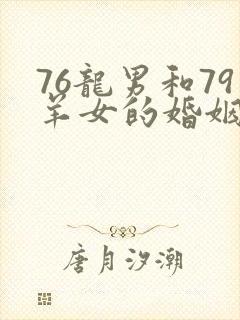 76龍男和79
羊女的婚姻
唐月汐潮